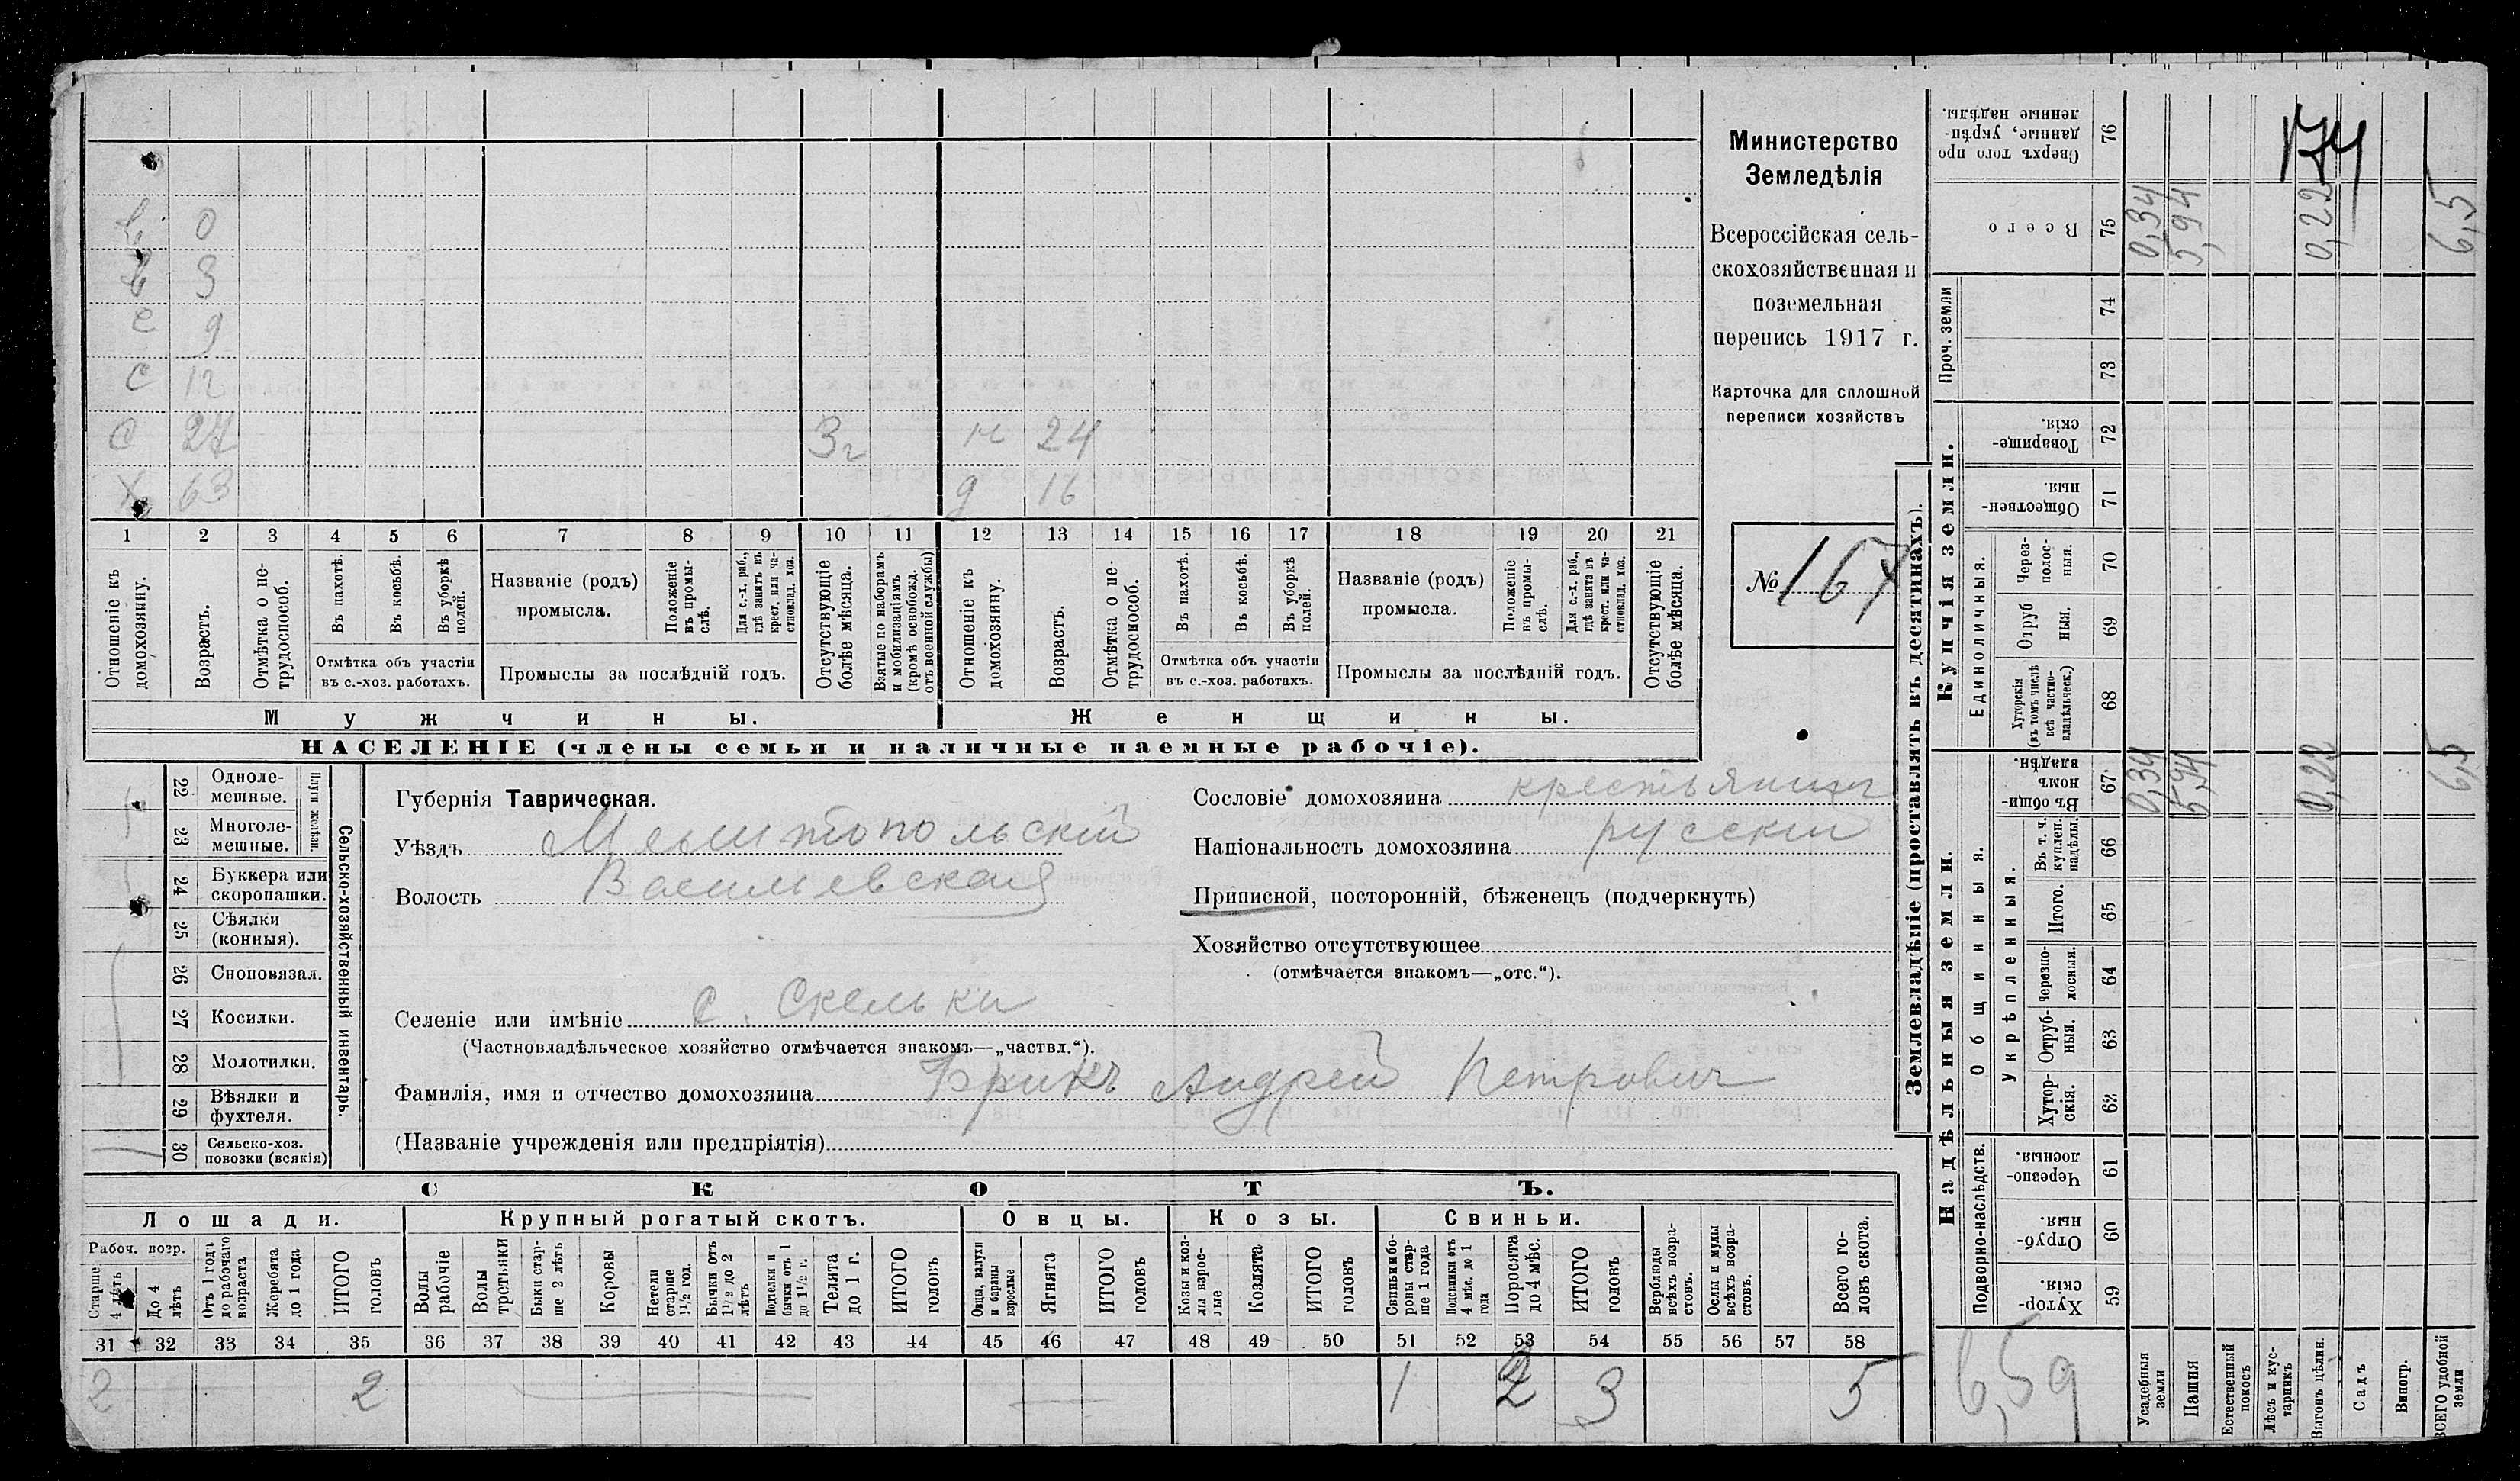 Министерство
Земледѣлія
Всероссійская сель-
скохозяйственная и
поземельная
перепись 1917 г.
Карточка для сплошной
переписи хозяйствъ
№ 167
174
0
3
с 9
с 12
с 27 3г н 24
х 63 д 16
1 2 3 4 5 6 7 8 9 10 11 12 13 14 15 16 17 18 19 20 21
Отношеніе къ домохозяину.
Возрастъ.
Отмѣтка о не-трудоспособ.
Въ пахотѣ.
Въ косьбѣ.
Въ уборкѣ полей.
Отмѣтка объ участіи
въ с.-хоз. работахъ.
Названіе (родъ)
промысла.
Положеніе въ промы-слѣ.
Для с.-х. раб., гдѣ занятъ въ крест. или ча-стновлад. хоз.
Промыслы за послѣдній годъ.
Отсутствующіе болѣе мѣсяца.
Взятые по наборамъ и мобилизаціямъ (кромѣ освобожд. отъ военной службы)
Отношеніе къ домохозяину.
Возрастъ.
Отмѣтка о не-трудоспособ.
Въ пахотѣ.
Въ косьбѣ.
Въ уборкѣ полей.
Отмѣтка объ участіи
въ с.-хоз. работахъ.
Названіе (родъ)
промысла.
Положеніе въ промы-слѣ.
Для с.-х. раб., гдѣ занята въ крест. или ча-стновлад. хоз.
Промыслы за послѣдній годъ.
Отсутствующіе болѣе мѣсяца.
Мужчины. Женщины.
НАСЕЛЕНІЕ (члены семьи и наличные наемные рабочіе).
Сельско-хозяйственный инвентарь.
Плуги желѣзн.
22 Одноле-мешные.
23 Многоле-мешные.
24 Буккера или скоропашки.
25 Сѣялки (конныя).
26 Сноповязал.
27 Косилки.
28 Молотилки.
29 Вѣялки и фухтеля.
30 Сельско-хоз. повозки (всякія)
Губернія Таврическая.
Уѣздъ Мелитопольскій
Волость Васильевская
Сословіе домохозяина крестьянин
Національность домохозяина русскій
Приписной, посторонній, бѣженецъ (подчеркнуть)
Хозяйство отсутствующее
(отмѣчается знакомъ—„отс.“).
Селеніе или имѣніе с. Скельки
(Частновладѣльческое хозяйство отмѣчается знакомъ—„частвл.“).
Фамилія, имя и отчество домохозяина Брикъ Андрей Петрович
(Названіе учрежденія или предпріятія)
СКОТЪ.
Лошади. Крупный рогатый скотъ. Овцы. Козы. Свиньи.
Рабоч. возр.
Старше 4 лѣтъ
До 4 лѣтъ
Отъ 1 года до рабочаго возраста
Жеребята до 1 года
ИТОГО головъ
Волы рабочіе
Волы третьяки
Быки стар-ше 2 лѣтъ
Коровы
Нетели старше 1½ год.
Бычки отъ 1½ до 2 лѣтъ
Подтелки и бычки отъ 1 до 1½ г.
Телята до 1 г.
ИТОГО головъ
Овцы, валухи и бараны взрослые
Ягнята
ИТОГО головъ
Козы и коз-лы взрос-лые
Козлята
ИТОГО головъ
Свиньи и бо-ровы стар-ше 1 года
Подсвинки отъ 4 мѣс. до 1 года
Поросята до 4 мѣс.
ИТОГО головъ
Верблюды всѣхъ возра-стовъ.
Ослы и мулы всѣхъ возра-стовъ.
Всего го-ловъ скота.
31 32 33 34 35 36 37 38 39 40 41 42 43 44 45 46 47 48 49 50 51 52 53 54 55 56 57 58
2 2 1 2 3 5
Землевладѣніе (проставлять въ десятинахъ).
Купчія земли.
Надѣльныя земли.
76 Сверхъ того про-данные, укрѣп-ленные надѣлы.
75 Всего 0,34 5,94 0,22 6,5
Проч. земли
74
73
72 Товарище-скія.
71 Обществен-ныя.
Единоличныя.
70 Через-полос-ныя.
69 Отруб-ныя.
68 Хуторскія (въ томъ числѣ всѣ частно-владѣльческ.)
Общинныя.
67 Въ общин-номъ владѣн. 0,34 5,94 0,22 6,5
Укрѣпленныя.
66 Въ т. ч. куплен. надѣлы.
65 Итого.
64 Черезпо-лосныя.
63 Отруб-ныя.
62 Хутор-скія.
Подворно-наслѣдств.
61 Черезпо-лосныя.
60 Отруб-ныя.
59 Хутор-скія.
6,5д
Усадебныя земли
Пашня
Естественный покосъ
Лѣсъ и кус-тарникъ
Выгонъ цѣлин.
Садъ
Виногр.
ВСЕГО удобной земли